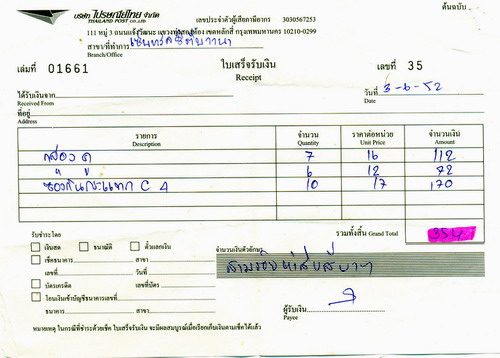 ต้นฉบับ
บริษัท ไปรษณีย์ไทย จำกัด
THAILAND POST CO.,LTD.
เลขประจำตัวผู้เสียภาษีอากร 3030567253
111 หมู่ 3 ถนนแจ้งวัฒนะ แขวงทุ่งสองห้อง เขตหลักสี่ กรุงเทพมหานคร 10210-0299
สาขา/ที่ทำการ
Branch/Office
เล่มที่ 01661
ใบเสร็จรับเงิน
Receipt
เลขที่ 35
ได้รับเงินจาก
Received From
วันที่ 3-6-52
Date
ที่อยู่
Address
รายการ จำนวน ราคาต่อหน่วย จำนวนเงิน
Description Quantity Unit Price Amount
กล่อง 7 16 112
6 12 72
ซองกันกระแทก C 4 10 17 170
รวมทั้งสิ้น Grand Total 354
รับชำระโดย
เงินสด ธนาณัติ ตั๋วแลกเงิน
จำนวนเงินตัวอักษร
สามร้อยห้าสิบสี่บาท
เช็คธนาคาร สาขา
เลขที่ วันที่
บัตรเครดิต เลขที่บัตร
โอนเงินเข้าบัญชีธนาคารเลขที่
ธนาคาร สาขา
ผู้รับเงิน
Payee
หมายเหตุ ในกรณีที่ชำระด้วยเช็ค ใบเสร็จรับเงิน จะมีผลสมบูรณ์เมื่อเรียกเก็บเงินตามเช็คได้แล้ว